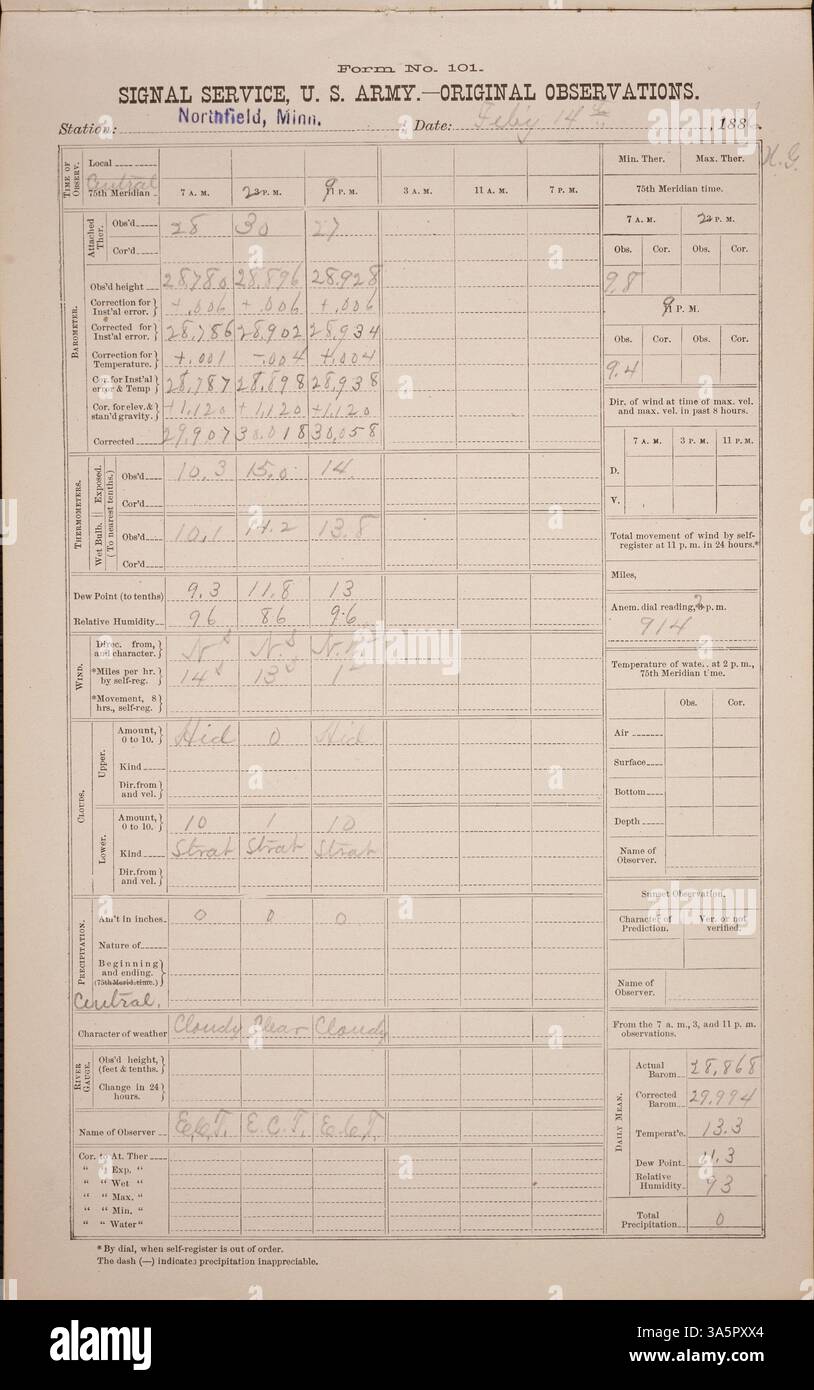 Form No. 101.
SIGNAL SERVICE, U. S. ARMY.—ORIGINAL OBSERVATIONS.
Station: Northfield, Minn. ; Date: Feby 14 th , 188
TIME OF OBSERV. Local
Central 75th Meridian 7 A. M. 2 P. M. 9 P. M. 3 A. M. 11 A. M. 7 P. M.
BAROMETER.
Attached Ther. Obs'd 28 30 27
Cor'd
Obs'd height 28.780 28.896 28.928
Correction for Inst'al error. +.006 +.006 +.006
Corrected for Inst'al error. 28.786 28.902 28.934
Correction for Temperature. +.001 -.004 +.004
Cor. for Inst'al error & Temp 28.787 28.898 28.938
Cor. for elev. & stan'd gravity. +1.120 +1.120 +1.120
Corrected 29.907 30.018 30.058
THERMOMETERS.
Exposed. Obs'd 10.3 15.0 14
Cor'd
Wet Bulb. (To nearest tenths.) Obs'd 10.1 14.2 13.8
Cor'd
Dew Point (to tenths) 9.3 11.8 13
Relative Humidity 96 86 96
WIND.
Direc. from, and character. N N N.
*Miles per hr. by self-reg. 14 13 1
*Movement, 8 hrs., self-reg.
CLOUDS.
Upper. Amount, 0 to 10. Hid 0 Hid
Kind
Dir. from and vel.
Lower. Amount, 0 to 10. 10 1 10
Kind Strat Strat Strat
Dir. from and vel.
PRECIPITATION.
Am't in inches 0 0 0
Nature of
Beginning and ending. (75th Merid. time.)
Central.
Character of weather Cloudy Clear Cloudy
RIVER GAUGE.
Obs'd height, (feet & tenths.)
Change in 24 hours.
Name of Observer E.C.T. E.C.T. E.C.T.
Cor. to At. Ther
" " Exp. "
" " Wet "
" " Max. "
" " Min. "
" " Water "
* By dial, when self-register is out of order.
The dash (—) indicates precipitation inappreciable.
Min. Ther. Max. Ther.
75th Meridian time.
7 A. M. 2 P. M.
Obs. Cor. Obs. Cor.
9.8
9 P. M.
Obs. Cor. Obs. Cor.
9.4
Dir. of wind at time of max. vel. and max. vel. in past 8 hours.
7 A. M. 3 P. M. 11 P. M.
D.
V.
Total movement of wind by self-register at 11 p. m. in 24 hours.*
Miles,
Anem. dial reading, 2 p. m.
914
Temperature of water at 2 p. m., 75th Meridian time.
Obs. Cor.
Air
Surface
Bottom
Depth
Name of Observer.
Sunset Observation.
Character of Prediction. Ver. or not verified.
Name of Observer.
From the 7 a. m., 3, and 11 p. m. observations.
DAILY MEAN.
Actual Barom. 28.868
Corrected Barom. 29.994
Temperat'e. 13.3
Dew Point 11.3
Relative Humidity 93
Total Precipitation 0
alamy
Image ID: 3A5PXX4
www.alamy.com